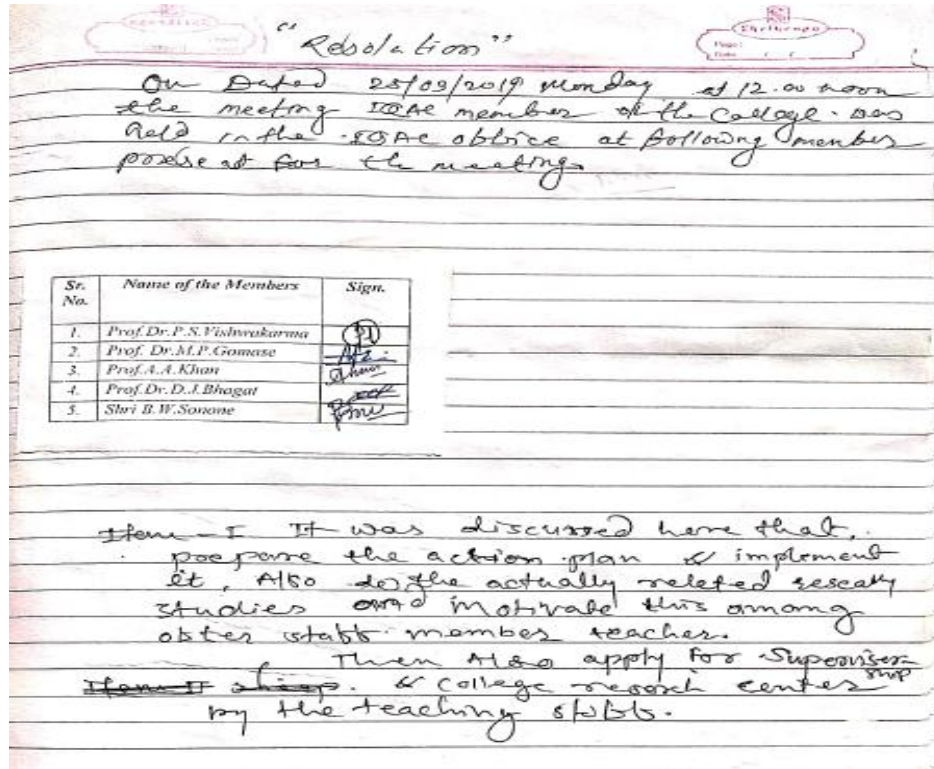 "Resolation"
Shrikrupa
Page :
Date : / /
On Dated 25/09/2019 Monday at 12.00 noon
the meeting IQAC member of the College. was
held in the IQAC obbice at following member
present for the meeting.
Sr. No. Name of the Members Sign.
1. Prof.Dr.P.S.Vishwakarma
2. Prof. Dr.M.P.Gomase
3. Prof.A.A.Khan
4. Prof.Dr.D.J.Bhagat
5. Shri B.W.Sonone
Item - I It was discussed here that,
prepare the action plan & implement
it, Also the actually releted
studies and motivate this among
obter stabb member teacher.
Then Also apply for Supervisership
Item II & College reserch center
by the teaching stabb.